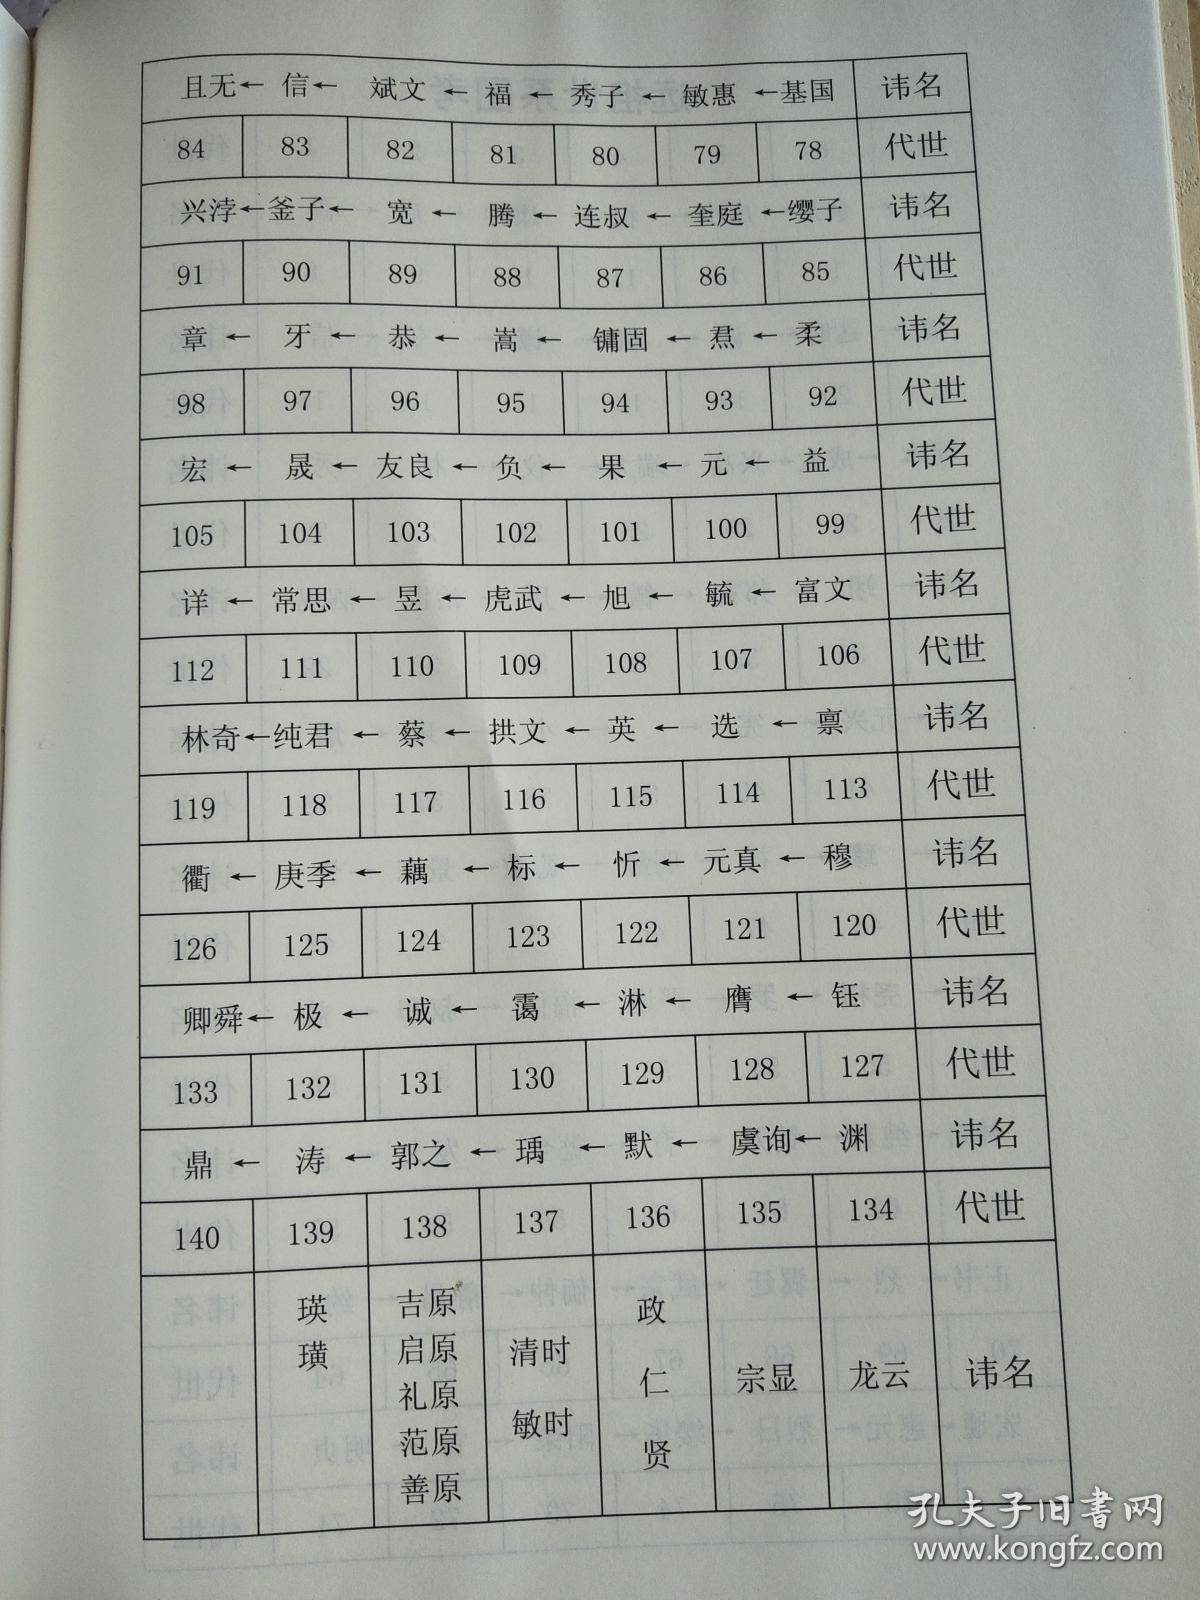 且无←信←斌文←福←秀子←敏惠←基国 讳名
84 83 82 81 80 79 78 代世
兴浡←釜子←宽←腾←连叔←奎庭←缨子 讳名
91 90 89 88 87 86 85 代世
章←牙←恭←嵩←镛固←焄←柔 讳名
98 97 96 95 94 93 92 代世
宏←晟←友良←负←果←元←益 讳名
105 104 103 102 101 100 99 代世
详←常思←昱←虎武←旭←毓←富文 讳名
112 111 110 109 108 107 106 代世
林奇←纯君←蔡←拱文←英←选←禀 讳名
119 118 117 116 115 114 113 代世
衢←庚季←藕←标←忻←元真←穆 讳名
126 125 124 123 122 121 120 代世
卿舜←极←诚←霭←淋←膺←钰 讳名
133 132 131 130 129 128 127 代世
鼎←涛←郭之←瑀←默←虞询←渊 讳名
140 139 138 137 136 135 134 代世
瑛 璜
吉原 启原 礼原 范原 善原
清时 敏时
政 仁 贤
宗显
龙云
讳名
孔夫子旧书网
www.kongfz.com